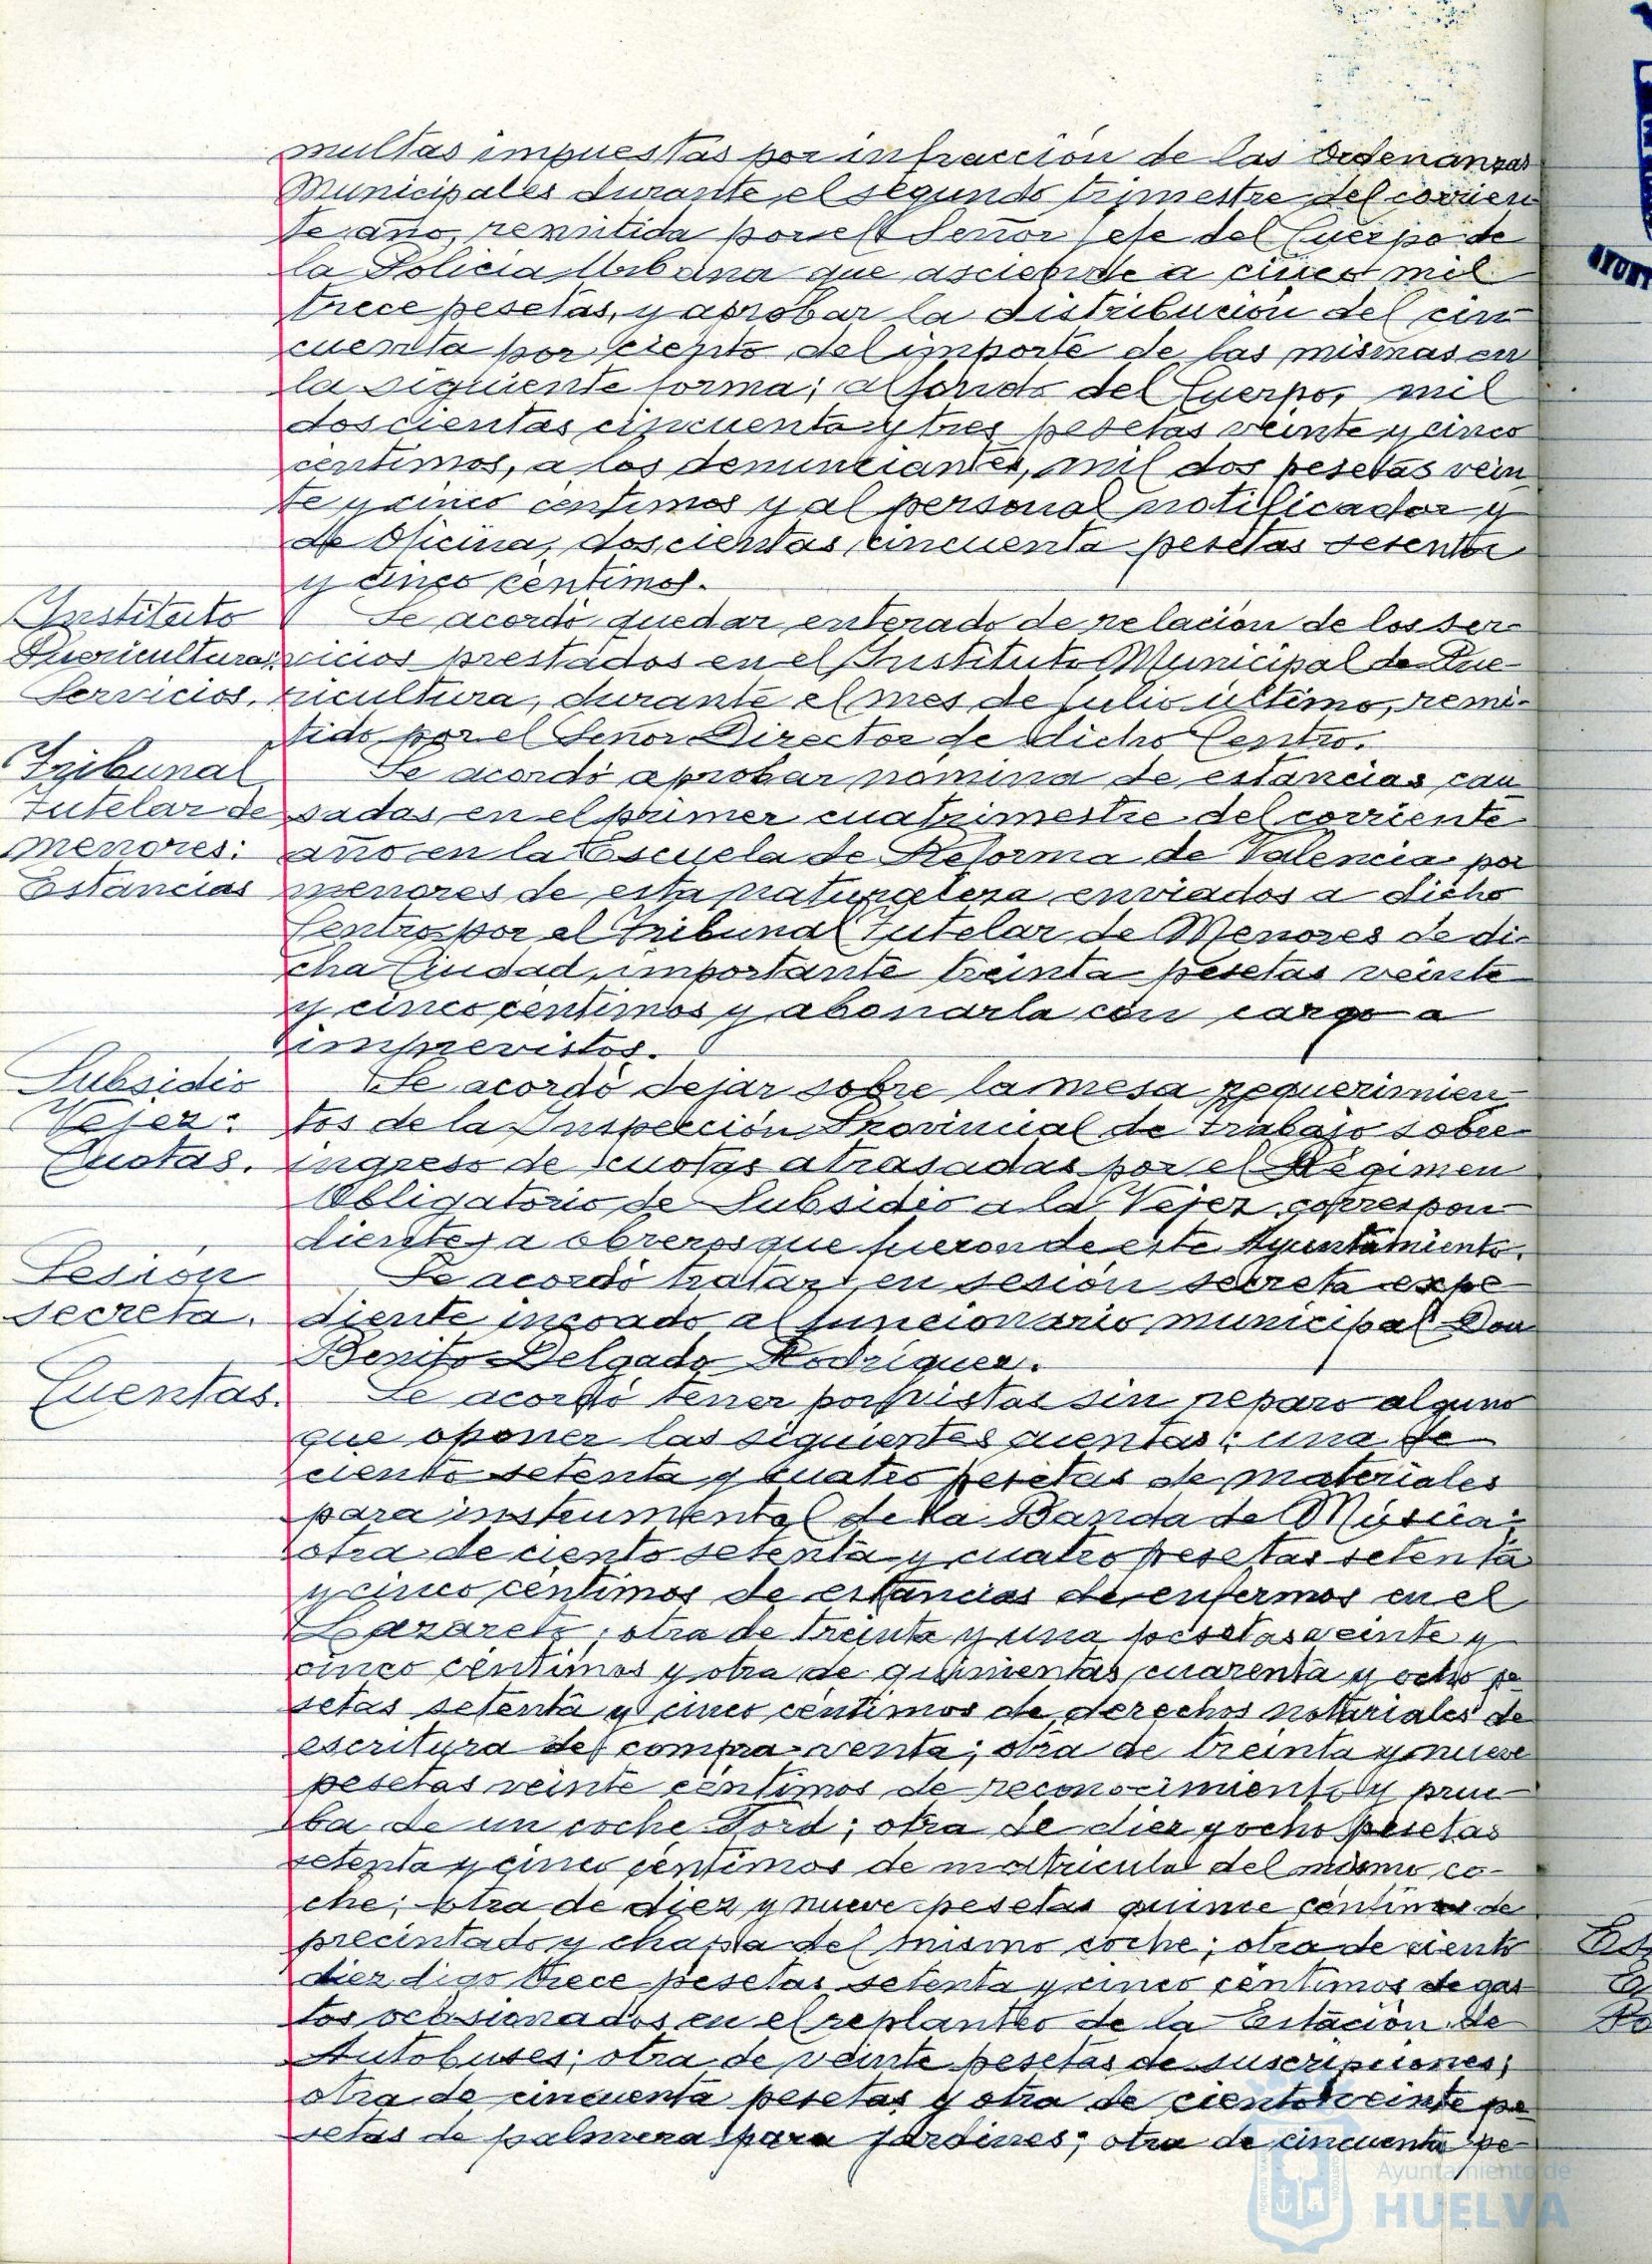 multas impuestas por infracción de las Ordenanzas
Municipales durante el segundo trimestre del corrien
te año, remitida por el Señor Jefe del Cuerpo de
la Policia Urbana que asciende a cinco mil
trece pesetas, y aprobar la distribución del cin
cuenta por ciento del importe de las mismas en
la siguiente forma; al fondo del Cuerpo, mil
doscientas cincuenta y tres pesetas veinte y cinco
centimos, a los denunciantes, mil dos pesetas vein
te y cinco centimos y al personal notificador y
de Oficina, doscientas cincuenta pesetas sesenta
y cinco centimos.
Instituto
Puericultura;
Servicios.
Se acordó quedar enterado de relación de los ser-
vicios prestados en el Instituto Municipal de Pue-
ricultura, durante el mes de julio último, remi-
tido por el Señor Director de dicho Centro.
Tribunal
tutelar de
menores:
Estancias
Se acordó aprobar nómina de estancias cau
sadas en el primer cuatrimestre del corriente
año en la Escuela de Reforma de Valencia por
menores de esta naturaleza enviados a dicho
Centro por el Tribunal Tutelar de Menores de di-
cha Ciudad, importante treinta pesetas veinte
y cinco centimos y abonarla con cargo a
imprevistos.
Subsidio
Vejez:
Cuotas.
Se acordó dejar sobre la mesa requerimien
tos de la Inspección Provincial de Trabajo sobre
ingreso de cuotas atrasadas por el Régimen
Obligatorio de Subsidio a la Vejez correspon
dientes a obreros que fueron de este Ayuntamiento.
Sesión
secreta.
Se acordó tratar en sesión secreta expe
diente incoado al funcionario municipal Don
Benito Delgado Rodríguez.
Cuentas.
Se acordó tener por vistas sin reparo alguno
que oponer las siguientes cuentas: una de
ciento setenta y cuatro pesetas de materiales
para instrumental de la Banda de Música;
otra de ciento setenta y cuatro pesetas setenta
y cinco centimos de estancias de enfermos en el
Lazareto; otra de treinta y una pesetas veinte y
cinco centimos y otra de quinientas cuarenta y ocho pe
setas setenta y cinco centimos de derechos notariales de
escritura de compra-venta; otra de treinta y nueve
pesetas veinte centimos de reconocimiento y prue
ba de un coche Ford; otra de diez y ocho pesetas
setenta y cinco centimos de matricula del mismo co-
che; otra de diez y nueve pesetas quince centimos de
precintado y chapa del mismo coche; otra de ciento
diez digo trece pesetas setenta y cinco centimos de gas
tos ocasionados en el replanteo de la Estación de
Autobuses; otra de veinte pesetas de suscripciones;
otra de cincuenta pesetas y otra de ciento veinte pe
setas de palmera para jardines; otra de cincuenta pe-
Ayuntamiento de
HUELVA